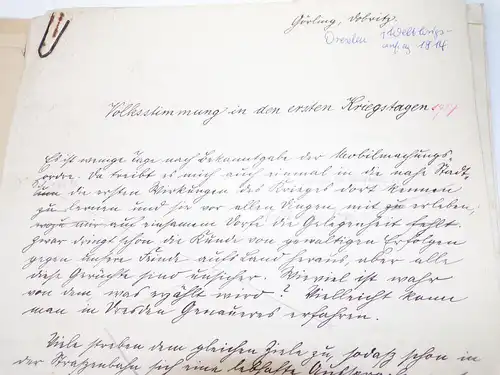 Görling, Dobritz.
Dresden Weltkriegs-
anfang 1914
Volksstimmung in den ersten Kriegstagen
Es ist wenige Tage nach Bekanntgabe der Mobilmachungs-
ordre. Da treibt es mich auch einmal in die nahe Stadt,
um da ersten Wirkungen des Krieges dort kennen
zu lernen und sie vor allen Dingen mit zu erleben,
wozu mir auf einsamem Dorfe die Gelegenheit fehlt.
Zwar dringt schon die Kunde von gewaltigen Erfolgen
gegen unsere Feinde aufs Land heraus, aber alle
diese Gerüchte sind unsicher. Wieviel ist wahr
von dem, was erzählt wird? Vielleicht kann
man in Dresden Genaueres erfahren.
Viele streben dem gleichen Ziele zu, sodaß schon in
der Straßenbahn sich eine lebhafte